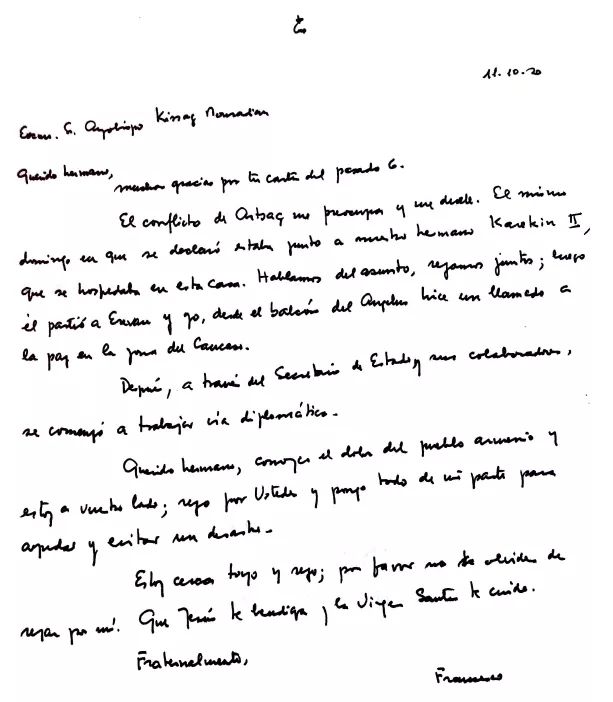 11.10.20
Excmo. S. Arzobispo Kissag Mouradian
Querido hermano,
muchas gracias por tu carta del pasado 6.
El conflicto de Artsaq me preocupa y me duele. El mismo
domingo en que se declaró estaba junto a nuestro hermano Karekin II,
que se hospedaba en esta Casa. Hablamos del asunto, rezamos juntos; luego
él partió a Erevan y yo, desde el balcón del Angelus hice un llamado a
la paz en la zona del Caucaso.
Después, a través del Secretario de Estado y sus colaboradores,
se comenzó a trabajar vía diplomática.
Querido hermano, conozco el dolor del pueblo armenio y
estoy a vuestro lado; rezo por Ustedes y pongo todo de mi parte para
ayudar y evitar un desastre.
Estoy cerca tuyo y rezo; por favor no te olvides de
rezar por mí. Que Jesús te bendiga y la Virgen Santa te cuide.
Fraternalmente,
Francesco